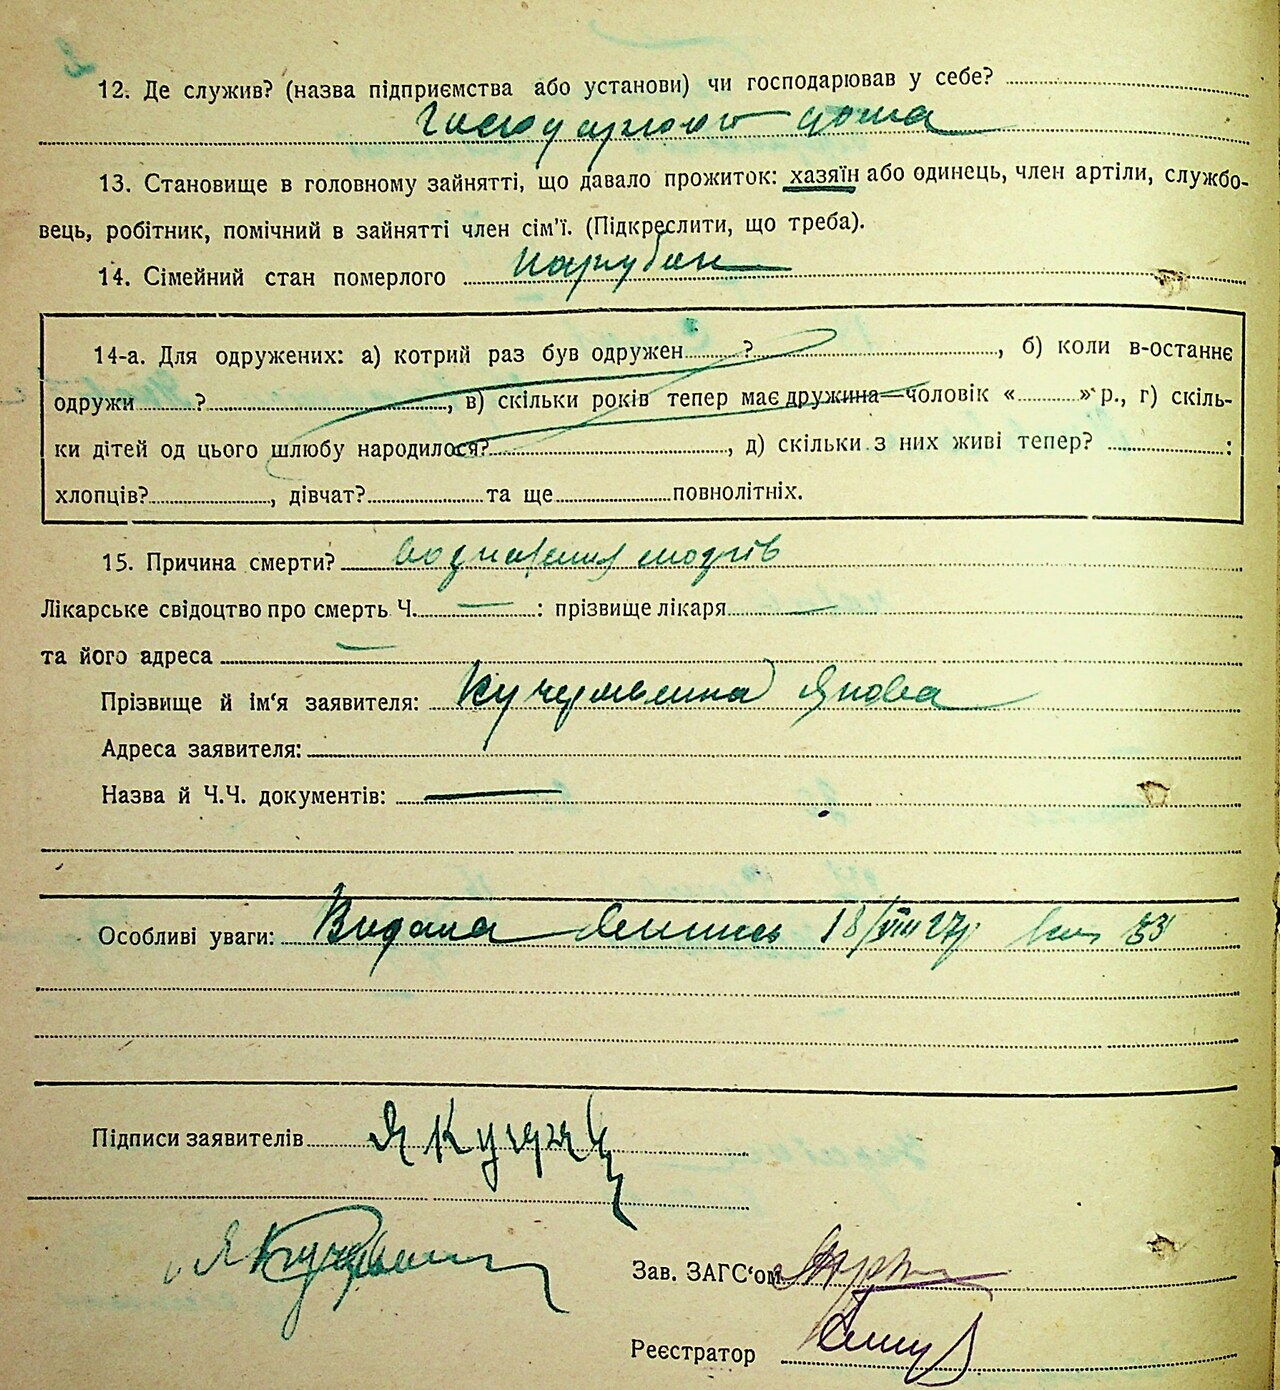 12. Де служив? (назва підприємства або установи) чи господарював у себе?
Господарював дома
13. Становище в головному зайнятті, що давало прожиток: хазяїн або одинець, член артіли, службо-
вець, робітник, помічний в зайнятті член сім'ї. (Підкреслити, що треба).
14. Сімейний стан померлого парубок
14-а. Для одружених: а) котрий раз був одружен ?, б) коли в-останнє
одружи ?, в) скільки років тепер має дружина—чоловік « » р., г) скіль-
ки дітей од цього шлюбу народилося?, д) скільки з них живі тепер? :
хлопців?, дівчат? та ще повнолітніх.
15. Причина смерти?
Лікарське свідоцтво про смерть Ч. — : прізвище лікаря —
та його адреса —
Прізвище й ім'я заявителя: Якова
Адреса заявителя:
Назва й Ч.Ч. документів: —
Особливі уваги: Видана 18/VIII 27р. 53
Підписи заявителів
Зав. ЗАГС'ом
Реєстратор